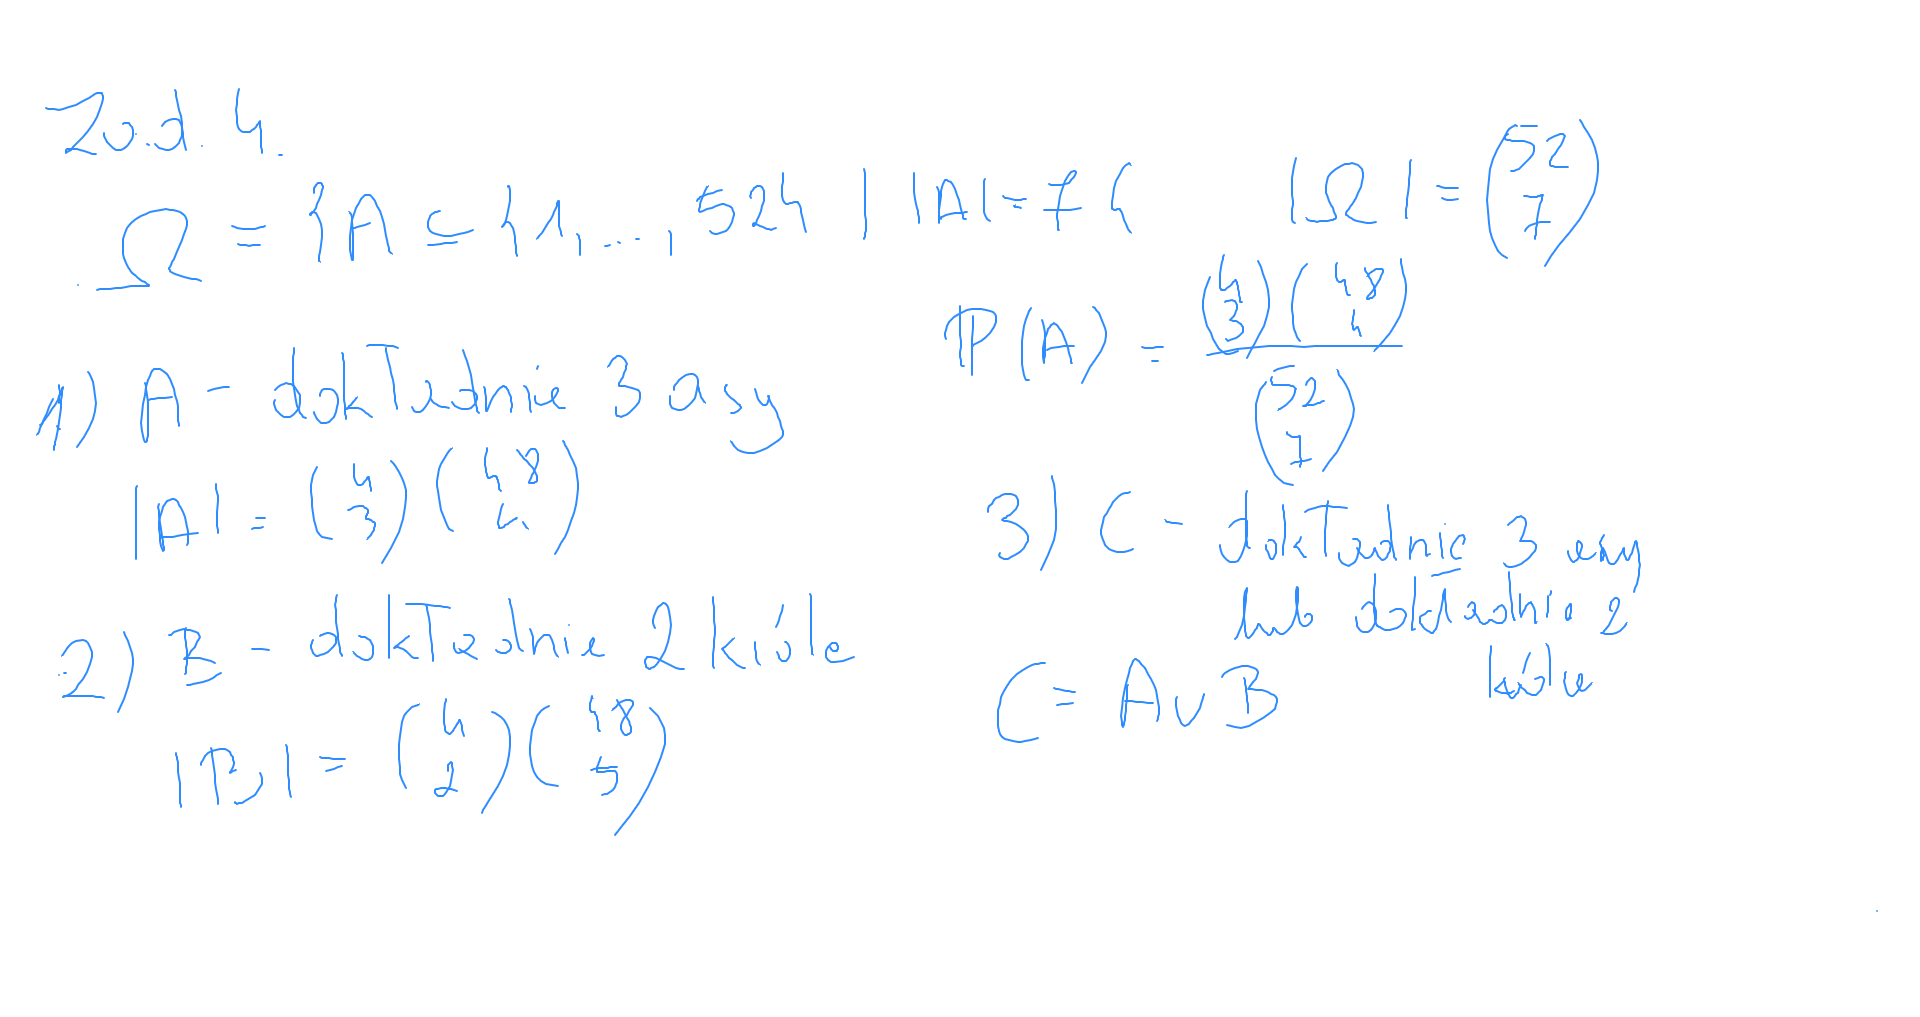 Zad. 4.
Ω = {A ⊆ {1, ..., 52} | |A| = 7}
|Ω| = (52 7)
1) A - dokładnie 3 asy
|A| = (4 3)(48 4)
P(A) = (4 3)(48 4) / (52 7)
2) B - dokładnie 2 króle
|B| = (4 2)(48 5)
3) C - dokładnie 3 asy
lub dokładnie 2
króle
C = A ∪ B